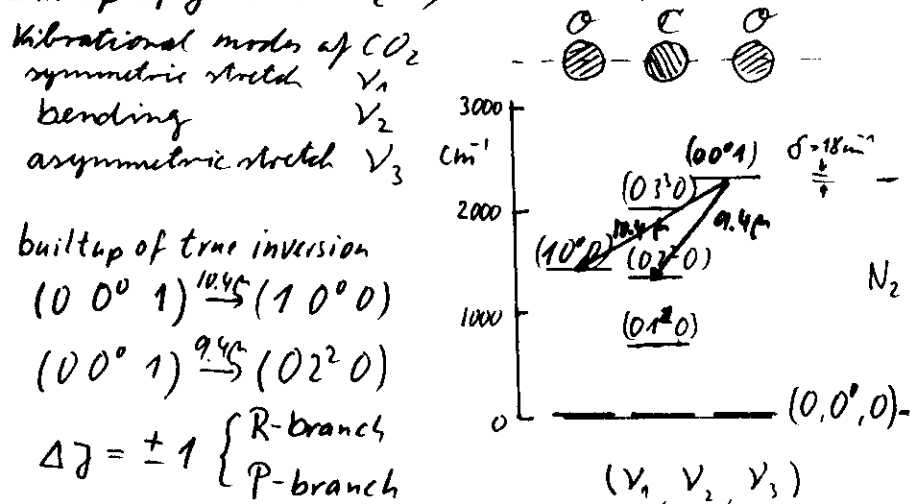 Vibrational modes of CO₂
symmetric stretch ν₁
bending ν₂
asymmetric stretch ν₃
builtup of true inversion
(0 0⁰ 1) 10.4μ → (1 0⁰ 0)
(0 0⁰ 1) 9.4μ → (0 2² 0)
ΔJ = ± 1 { R-branch
P-branch
O C O
3000
cm⁻¹
(00⁰1) δ=18cm⁻¹
(03³0)
2000
10.4μ 9.4μ
(10⁰0) (02²0)
N₂
1000
0
(0,0⁰,0)
(ν₁, ν₂, ν₃)